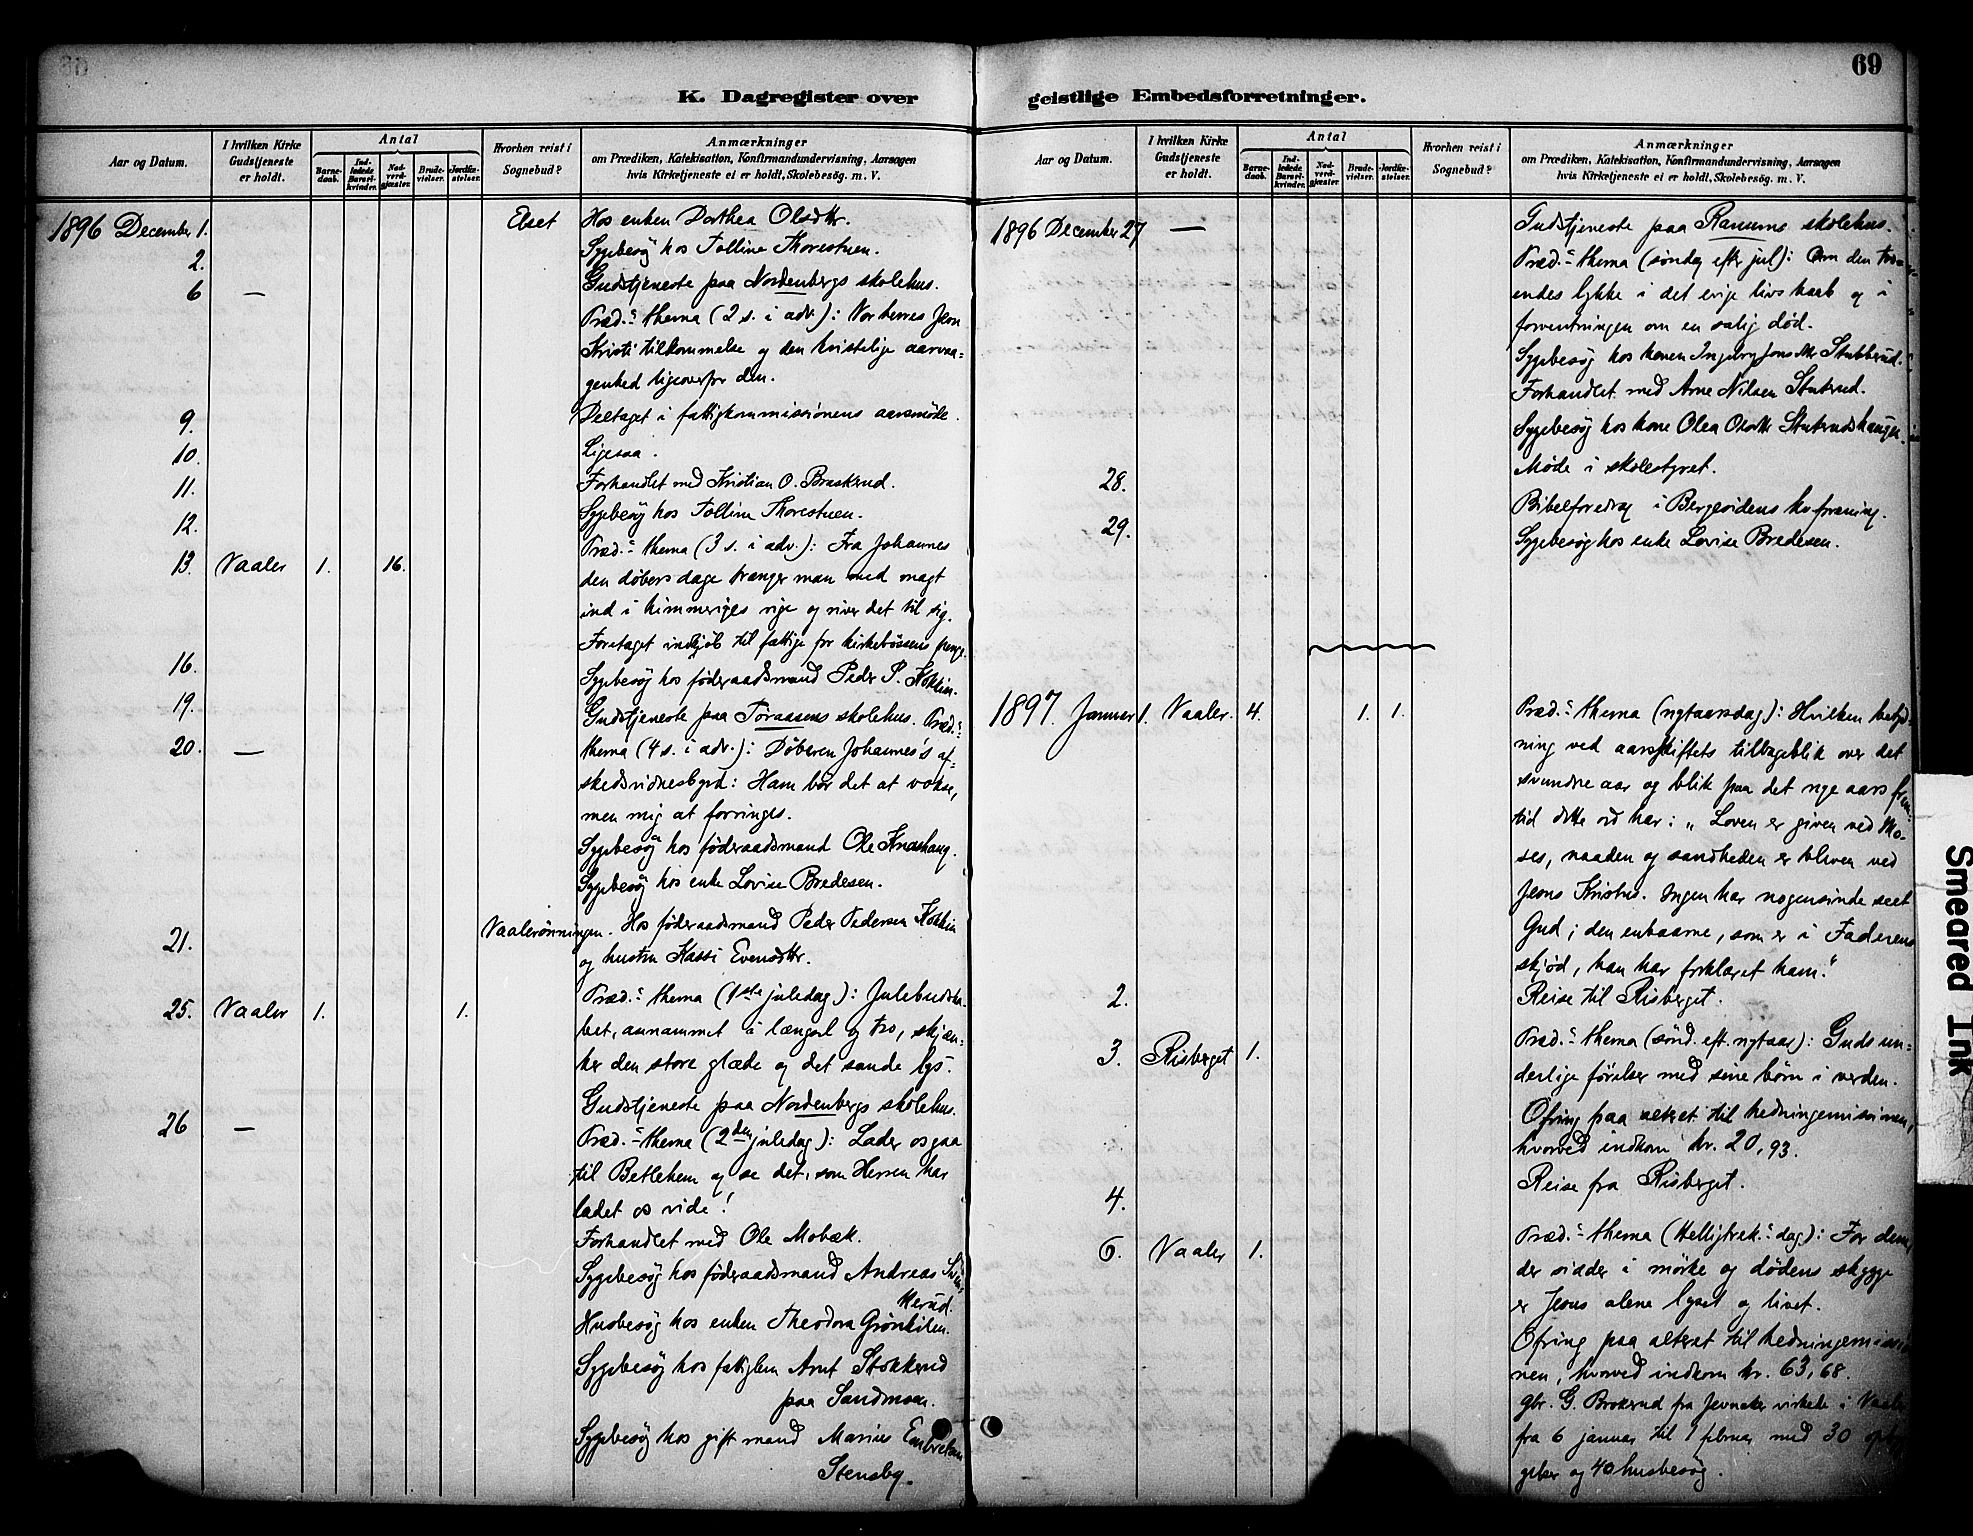 69
K. Dagregister over geistlige Embedsforretninger.
Aar og Datum.
I hvilken Kirke Gudstjeneste er holdt.
Antal
Barnedaab.
Indledede Barselkvinder.
Nadverdgjæster.
Brudevielser.
Jordfæstelser.
Hvorhen reist i Sognebud?
Anmærkninger
om Prædiken, Katekisation, Konfirmandundervisning, Aarsagen
hvis Kirketjeneste ei er holdt, Skolebesøg. m. V.
1896 December 1. Elset Hos enken Dorthea Olsdtr.
2. Sygebesøg hos Tolline Thorestuen.
6 — Gudstjeneste paa Nordenbergs skolehus.
Præd.- thema (2 s. i adv.): Vor herres Jesu
Kristi tilkommelse og den kristelige aarvaa-
genhed ligeoverfor den.
9. Deltaget i fattigkommissionens aarsmøde.
10. Ligesaa.
11. Forhandlet med Kristian O. Braskerud.
12. Sygebesøg hos Tolline Thorestuen.
13. Vaaler 1. 16. Præd.- thema (3 s. i adv.): Fra Johannes
den døbers dage trænger man med magt
ind i himmeriges rige og river det til sig.
16. Foretaget indkjøb til fattige for kirkebøssens penge.
19. Sygebesøg hos føderaadsmand Peder P.
20. — Gudstjeneste paa Toraasens skolehus. Præd.-
thema (4 s. i adv.): Døberen Johannes's af-
skedsvidnesbyrd: Ham bør det at vokse,
men mig at forringes.
Sygebesøg hos føderaadsmand Ole Knashaug.
Sygebesøg hos enke Lovise Bredesen.
21. Vaalerønningen. Hos føderaadsmand Peder Pedersen
og hustru Kassi Evensdtr.
25. Vaaler 1. 1. Præd.- thema (1ste juledag): Julebudska-
bet, annammet i længsel og tro, skjæn-
ker den store glæde og det sande lys.
26 — Gudstjeneste paa Nordenbergs skolehus.
Præd.- thema (2den juledag): Lader os gaa
til Betlehem og se det, som Herren har
ladet os vide!
Forhandlet med Ole Mobæk.
Sygebesøg hos føderaadsmand Andreas
Husbesøg hos enken Theodora Grønkilen.
Sygebesøg hos fattiglem Arnt Stokkerud
paa Sandmoen.
Sygebesøg hos gift mand Marius Embretsen
Stensby.
Aar og Datum.
I hvilken Kirke Gudstjeneste er holdt.
Antal
Barnedaab.
Indledede Barselkvinder.
Nadverdgjæster.
Brudevielser.
Jordfæstelser.
Hvorhen reist i Sognebud?
Anmærkninger
om Prædiken, Katekisation, Konfirmandundervisning, Aarsagen
hvis Kirketjeneste ei er holdt, Skolebesøg. m. V.
1896 December 27 — Gudstjeneste paa Ranums skolehus.
Præd.- thema (søndag efter jul): Om den tro-
endes lykke i det evige livs haab og i
forventningen om en salig død.
Sygebesøg hos konen Ingebrg Jonsdtr Stubberud.
Forhandlet med Arne Nilsen Stutrud.
Sygebesøg hos kone Olea Olsdtr Stutrudshaugen.
28. Møde i skolestyret.
29. Bibelforedrag i Bergesidens kv.forening.
Sygebesøg hos enke Lovise Bredesen.
1897. Januar 1. Vaaler. 4. 1. 1. Præd.- thema (nytaarsdag): Hvilken betyd-
ning ved aarsskiftets tilbageblik over det
svundne aar og blik paa det nye aars frem-
tid dette ord har: „Loven er given ved Mo-
ses, naaden og sandheden er bleven ved
Jesus Kristus. Ingen har nogensinde seet
Gud; den enbaarne, som er i Faderens
skjød, han har forklaret ham."
2. Reise til Risberget.
3. Risberget 1. Præd.- thema (sønd. eft. nytaar): Guds un-
derlige førelser med sine børn i verden.
Ofring paa alteret til hedningemissionen,
hvorved indkom kr. 20,93.
4. Reise fra Risberget.
6. Vaaler 1. Præd.- thema (Helligtrek.- dag): For dem,
der sidder i mørke og dødens skygge
er Jesus alene lyset og livet.
Ofring paa alteret til hedningemissio-
nen, hvorved indkom kr. 63,68.
gbr. G. Brokerud fra Jevnaker virkede i Vaaler
fra 6 januar til 1 februar med 30 opby-
gelser og 40 husbesøg.
Smeared Ink